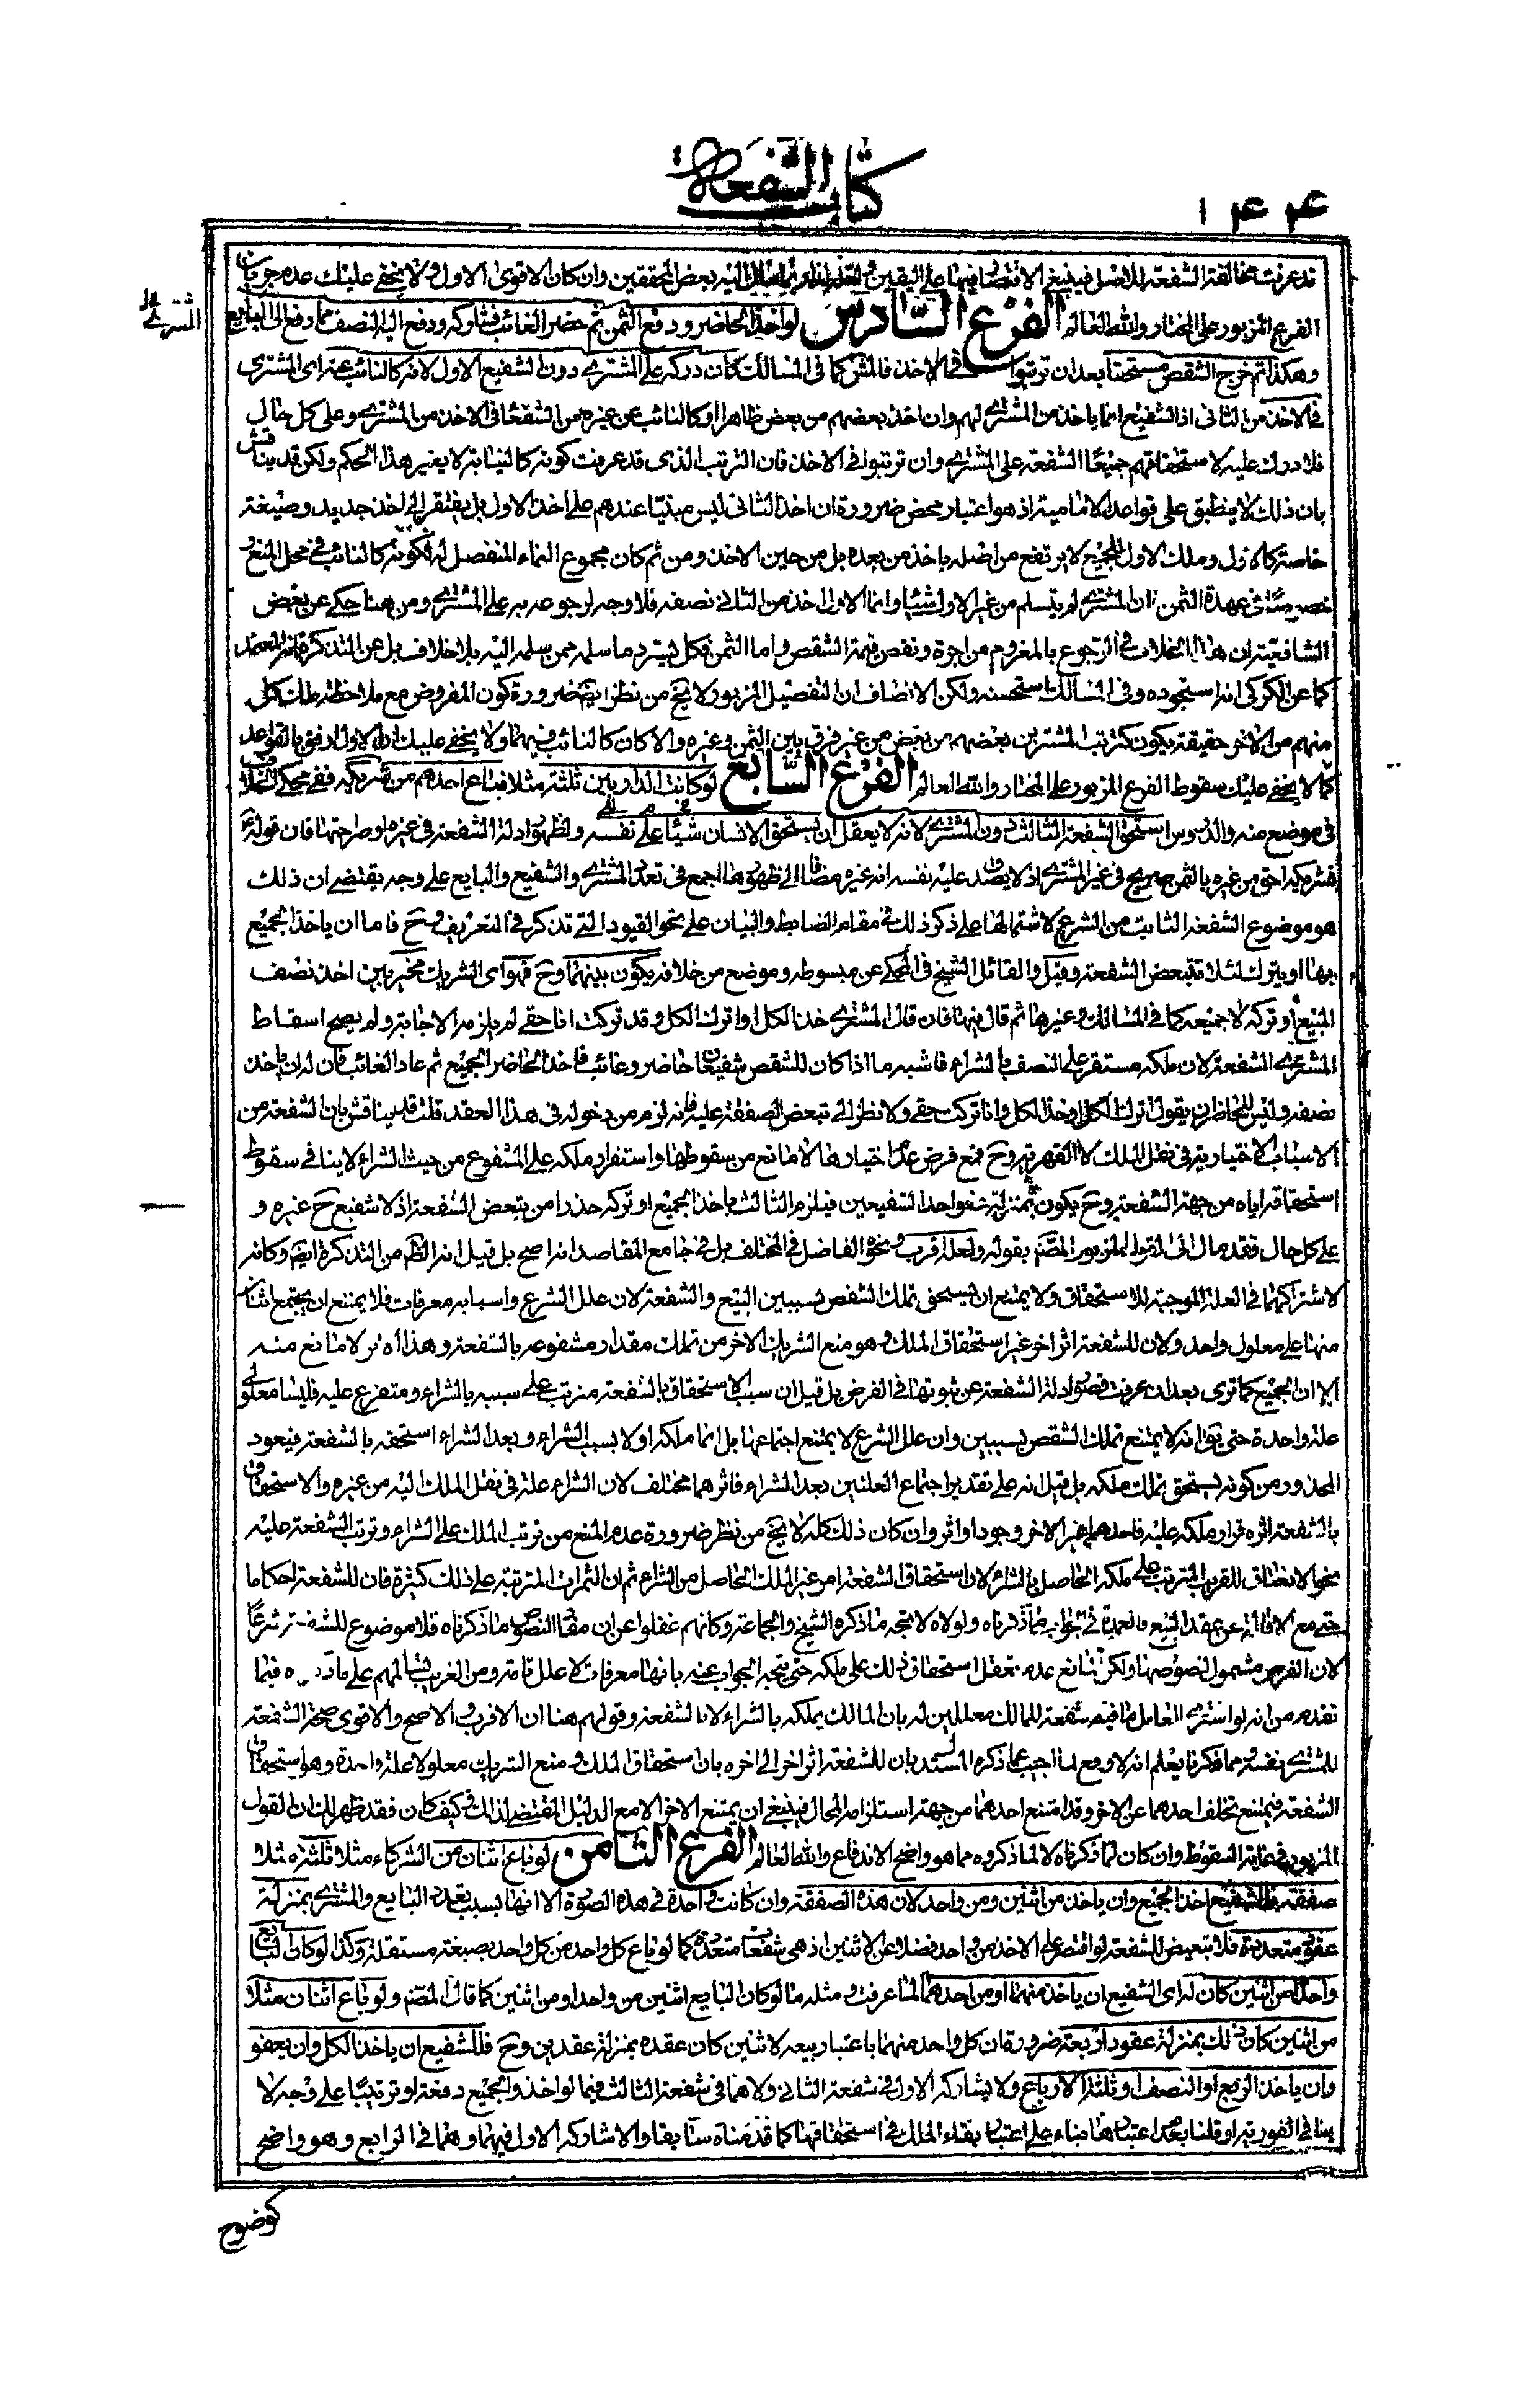 كتاب الشفعة
١٤٤
قد عرفت مخالفة الشفعة للاصل فينبغي الاقتصار فيها على اليقين بعض المحققين وان كان الاقوى الاول ولا يخفى عليك عدم جريان
الفرع المزبور على المختار والله العالم الفرع السادس لو اخذ الحاضر ودفع الثمن ثم حضر الغائب فشاركه ودفع اليه النصف مما دفع الى البايع
المشتري خ ل
وهكذا ثم خرج الشقص مستحقا بعد ان ترتبوا في الاخذ في المسالك كان دركه على المشتري دون الشفيع الاول لانه كالنائب عنه اي المشتري
في الاخذ من الثاني اذ الشفيع انما ياخذ من المشتري لهم وان اخذ بعضهم من بعض ظاهرا او كالنائب عن غيره من الشفعاء في الاخذ من المشتري وعلى كل حال
فلا درك عليه لاستحقاقهم جميعا الشفعة على المشتري وان ترتبوا في الاخذ فان الترتب الذي قد عرفت كونه كالنيابة لا يغير هذا الحكم ولكن قد يناقش
بان ذلك لا ينطبق على قواعد الامامية اذ هو اعتبار محض ضرورة ان اخذ الثاني ليس مبنيا عندهم على اخذ الاول بل يفتقر الى اخذ جديد وصيغة
خاصة كالاول وملك الاول للجميع لا يرتفع من اصله باخذ من بعده بل من حين الاخذ ومن ثم كان مجموع النماء المنفصل له فكونه كالنائب في محل المنع و
خصوصا في عهدة الثمن ان المشتري لم يتسلم من غير الاول شيئا وانما الاول اخذ من الثاني نصفه فلا وجه لرجوعه به على المشتري ومن هنا حكي عن بعض
الشافعية ان هذا الخلاف في الرجوع بالمغروم من اجرة ونقص قيمة الشقص واما الثمن فكل يسترد ما سلمه ممن سلمه اليه بلا خلاف بل عن التذكرة انه المعتمد
كما عن الكركي انه استجوده وفي المسالك استحسنه ولكن الانصاف ان التفصيل المزبور لا يخ من نظر ايضا ضرورة كون المفروض مع ملاحظة ملك كل
منهم من الاخر حقيقة يكون كترتب المشترين بعضهم من بعض من غير فرق بين الثمن وغيره والا كان كالنائب فيهما ولا يخفى عليك ان الاول اوفق بالقواعد
كما لا يخفى عليك سقوط الفرع المزبور على المختار والله العالم الفرع السابع لو كانت الدار بين ثلثة مثلا فباع احدهم من شريكه ففي محكي الخلاف
في موضع منه والسرائر استحق الشفعة الثالث دون المشتري لانه لا يعقل ان يستحق الانسان شيئا على نفسه ولظهور ادلة الشفعة في غيره او صراحتها فان قوله ع
فشريكه احق من غيره بالثمن صريح في غير المشتري اذ لا يصدق عليه نفسه انه غيره مضافا الى ظهورها اجمع في تعدد المشتري والشفيع والبايع على وجه يقتضي ان ذلك
هو موضوع الشفعة الثابت من الشرع لاشتمالها على ذكر ذلك في مقام الضابط والبيان على نحو القيود التي تذكر في التعريف وح فاما ان ياخذ الجميع
بها او يترك لئلا تتبعض الشفعة وقيل والقائل الشيخ في المحكي عن مبسوطه وموضع من خلافه يكون بينهما وح فهو اي الشريك مخير بين اخذ نصف
المبيع او تركه لا جميعه كما في المسالك وغيرها ثم قال فيها فان قال المشتري خذ الكل او اترك الكل وقد تركت انا حقي لم يلزمه الاجابة ولم يصح اسقاط
المشتري الشفعة لان ملكه مستقر على النصف بالشراء فاشبه ما اذا كان للشقص شفيعان حاضر وغائب فاخذ الحاضر الجميع ثم عاد الغائب فان له ان ياخذ
نصفه وليس للحاضر ان يقول اترك الكل او خذ الكل وانا تركت حقي ولا نظر الى تبعض الصفقة عليه فانه لزم من دخوله في هذا العقد قلت قد يناقش بان الشفعة من
الاسباب الاختيارية في نقل الملك لا القهرية وح فمع فرض عدم اختيارها لا مانع من سقوطها واستقرار ملكه على المشفوع من حيث الشراء لا ينافي سقوط
استحقاقه اياه من جهة الشفعة وح يكون بمنزلة عفو احد الشفيعين فيلزم الثالث باخذ الجميع او تركه حذرا من تبعض الشفعة اذ لا شفيع ح غيره و
على كل حال فقد مال الى القول المزبور المصنف بقوله ولعله اقرب ونحوه الفاضل في المختلف بل في جامع المقاصد انه اصح بل قيل انه الظاهر من التذكرة ايضا وكانه
لاشتراكهما في العلة الموجبة للاستحقاق ولا يمتنع ان يستحق تملك الشقص بسببين البيع والشفعة لان علل الشرع واسبابه معرفات فلا يمتنع ان يجتمع اثنان
منها على معلول واحد ولان للشفعة اثرا اخر غير استحقاق الملك وهو منع الشريك الاخر من تملك مقدار مشفوعه بالشفعة وهذا اثر لا مانع منه
الا ان الجميع كما ترى بعد ان عرفت قصور ادلة الشفعة عن ثبوتها في الفرض بل قيل ان سبب الاستحقاق بالشفعة مترتب على سببه بالشراء ومتفرع عليه فليسا معلولي
علة واحدة حتى يق انه لا يمتنع تملك الشقص بسببين وان علل الشرع لا يمتنع اجتماعها بل انما ملكه اولا بسبب الشراء وبعد الشراء استحقه بالشفعة فيعود
المحذور من كونه يستحق تملك ملكه بل قيل انه على تقدير اجتماع العلتين بعد الشراء فاثرهما مختلف لان الشراء علة في نقل الملك اليه من غيره والاستحقاق
بالشفعة اثره قرار ملكه عليه فاحدهما غير الاخر وجودا واثرا وان كان ذلك كله لا يخ من نظر ضرورة عدم المنع من ترتب الملك على الشراء وترتب الشفعة عليه
نحو الانعتاق للقريب المترتب على ملكه الحاصل بالشراء لان استحقاق الشفعة امر غير الملك الحاصل من الشراء ثم ان الثمرات المترتبة على ذلك كثيرة فان للشفعة احكاما
حتى مع الاقالة عن عقد البيع فالعمدة في الجواب ما ذكرناه ولولاه لاتجه ما ذكره الشيخ والجماعة وكانهم غفلوا عن ان مقتضى النصوص ما ذكرناه فلا موضوع للشفعة شرعا
لان الفرض مشمول لنصوصها ولكن المانع عدم تعقل استحقاق ذلك على ملكه حتى يتجه الجواب عنه بانها معرفات لا علل تامة ومن الغريب فيما
تقدم من انه لو اشترى العامل ما فيه شفعة للمالك معللين له بان المالك يملكه بالشراء لا بالشفعة وقولهم هنا ان الاقرب والاصح والاقوى صحة الشفعة
للمشتري نفسه ومما ذكرنا يعلم انه لا وقع لما اجيب عما ذكره المستدل بان للشفعة اثرا اخر الى اخره بان استحقاق الملك ومنع الشريك معلولا علة واحدة وهو استحقاق
الشفعة فيمتنع تخلف احدهما عن الاخر وقد امتنع احدهما من جهة استلزامه المحال فينبغي ان يمتنع الاخر الا مع الدليل المقتضي لذلك وكيف كان فقد ظهر لك ان القول
المزبور في غاية السقوط وان كان لما ذكرناه لا لما ذكروه مما هو واضح الاندفاع والله العالم الفرع الثامن لو باع اثنان من الشركاء مثلا ثلثة مثلا
صفقة فللشفيع اخذ الجميع وان ياخذ من اثنين ومن واحد لان هذه الصفقة وان كانت واحدة في هذه الصورة الا انها بسبب تعدد البايع والمشتري بمنزلة
عقود متعددة فلا تبعيض للشفعة لو اقتصر على الاخذ من واحد فضلا عن الاثنين اذ هي شفعات متعددة كما لو باع كل واحد من كل واحد بصيغة مستقلة وكذا لو كان البايع
واحدا من اثنين كان له اي الشفيع ان ياخذ منهما او من احدهما لما عرفت ومثله ما لو كان البايع اثنين من واحد او من اثنين كما قال المصنف ولو باع اثنان مثلا
من اثنين كان ذلك بمنزلة عقود اربعة ضرورة ان كل واحد منهما باعتبار بيعه لاثنين كان عقده بمنزلة عقدين وح فللشفيع ان ياخذ الكل وان يعفو
وان ياخذ الربع او النصف او ثلثة الارباع ولا يشاركه الاول في شفعة الثاني ولا هما في شفعة الثالث فيما لو اخذ والجميع دفعة او ترتيبا على وجه لا
ينافي الفورية او قلنا بعدم اعتبارها بناء على اعتبار بقاء الملك في استحقاقها كما قدمناه سابقا والا شاركه الاول فيهما وهما في الرابع وهو واضح
كوضوح